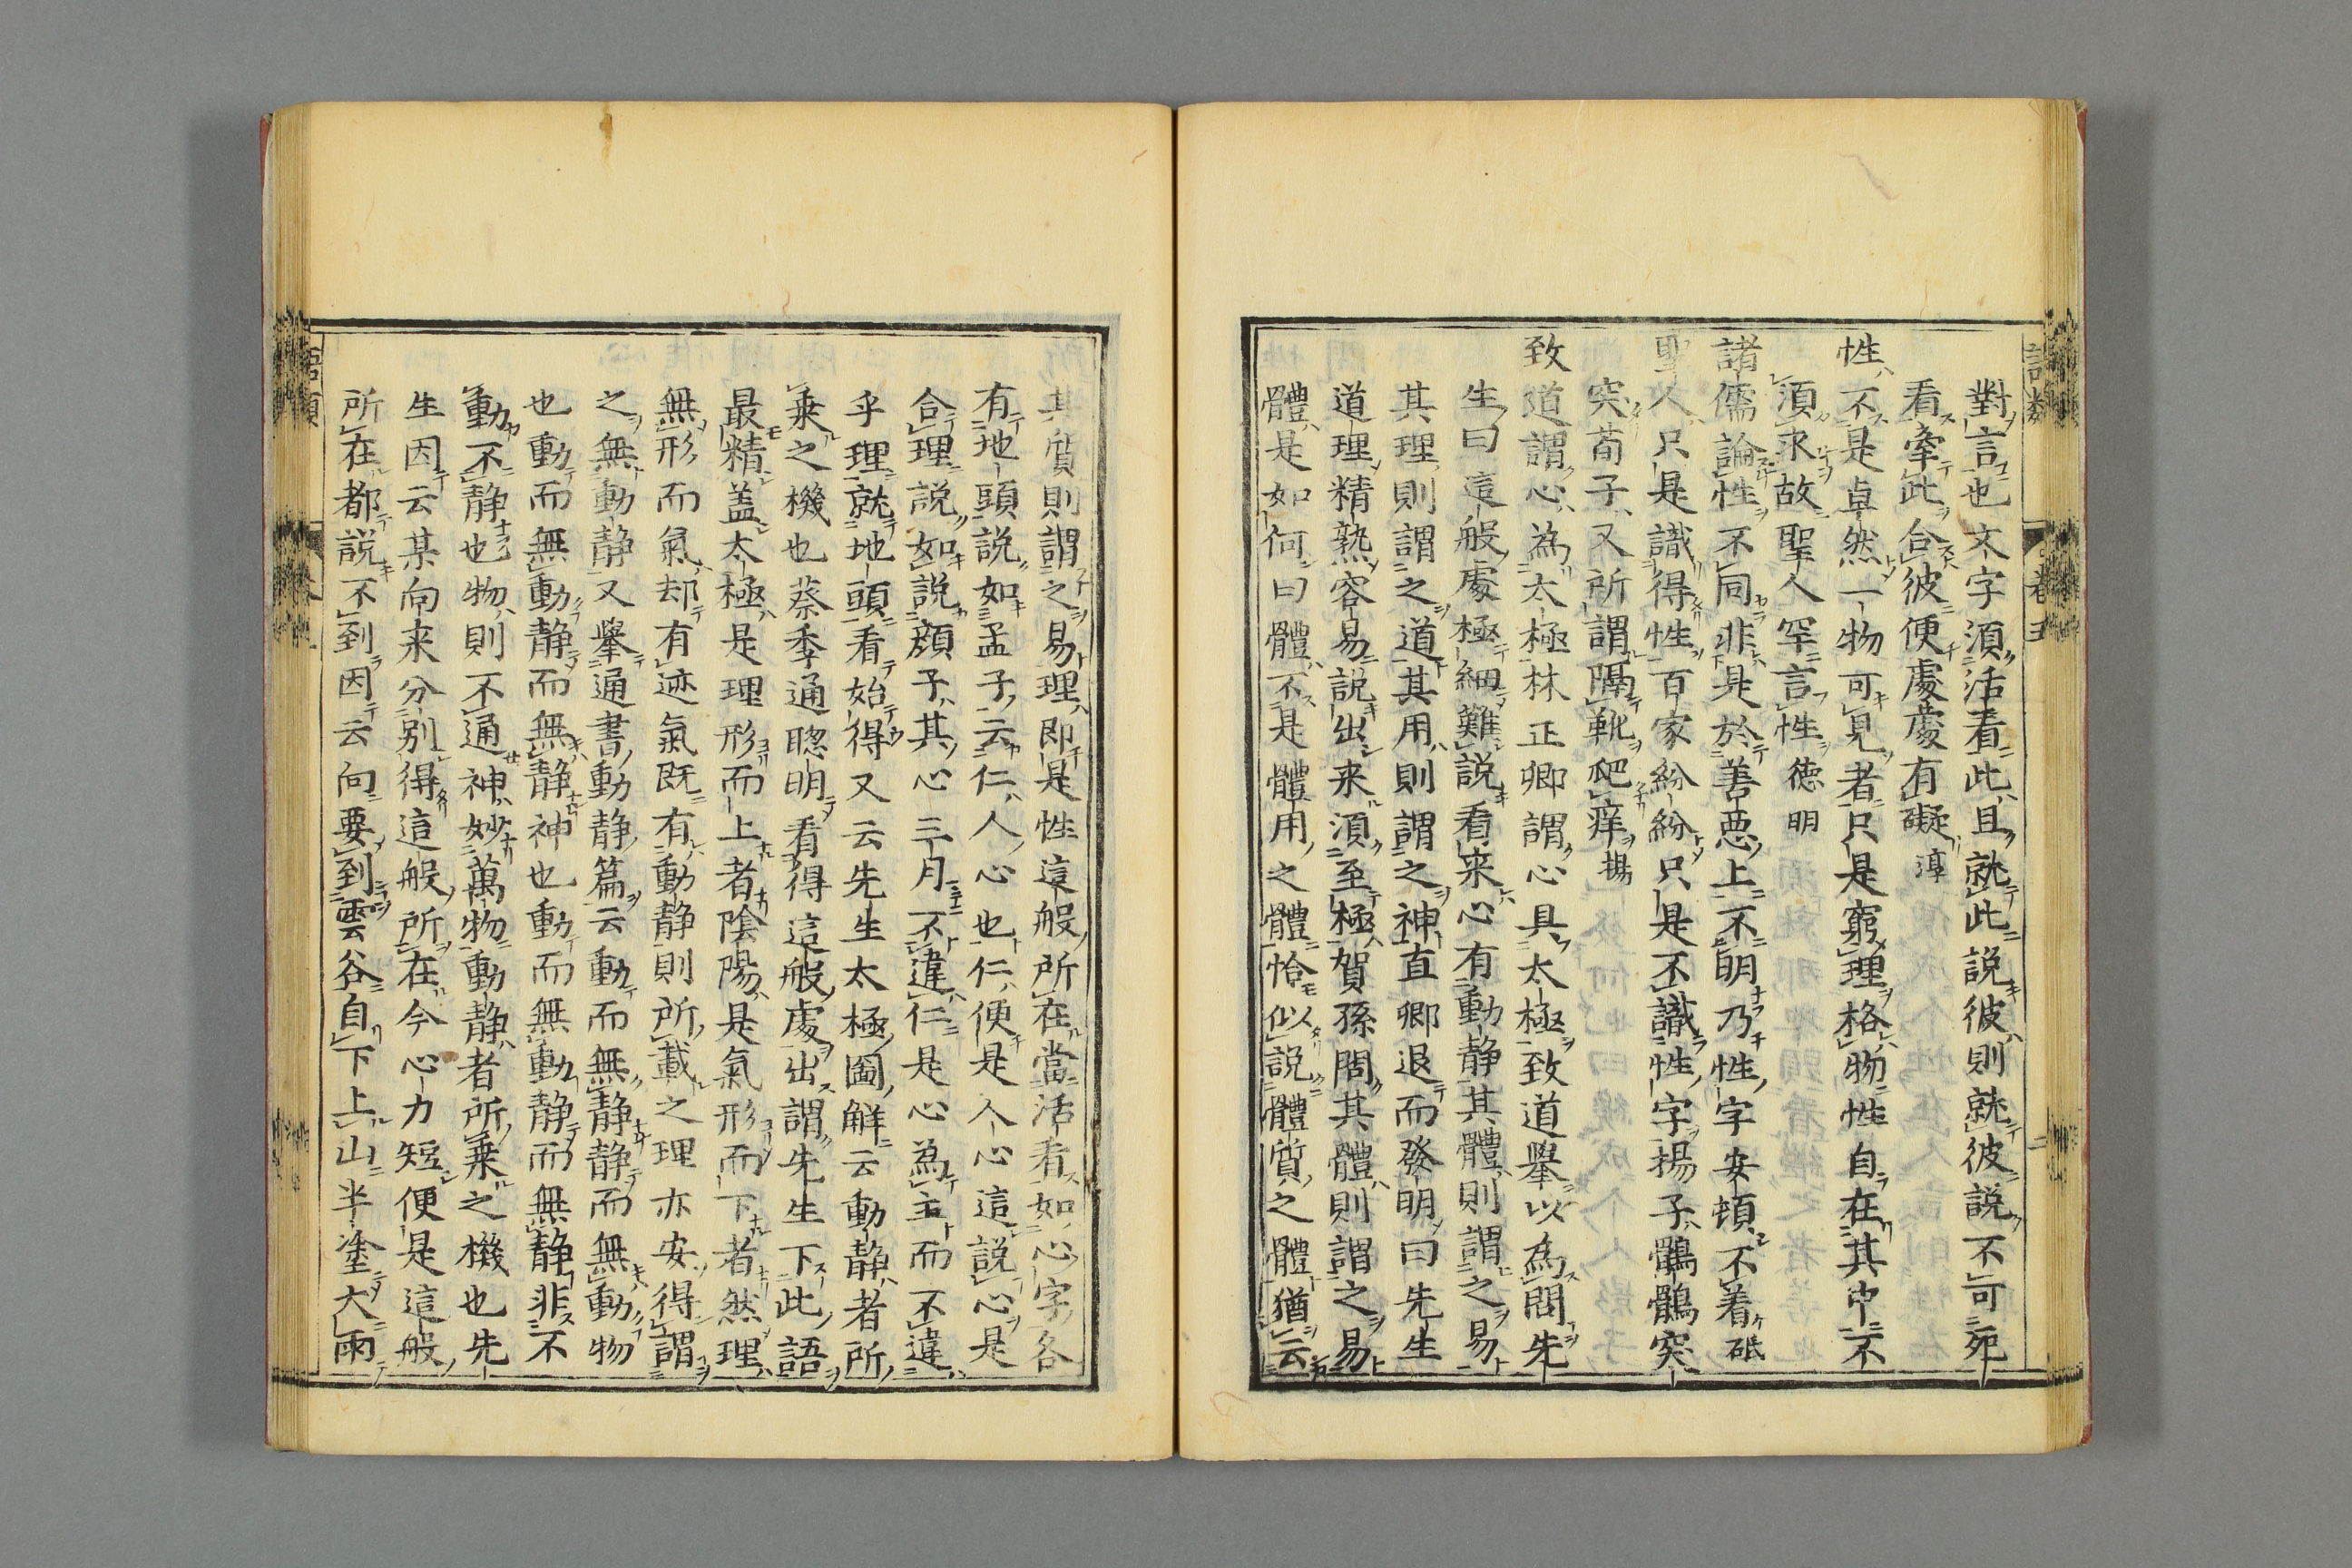 對言也文字須活看此且就此說彼則就彼說不可死
看牽此合彼便處處有礙淳
性不是卓然一物可見者只是窮理格物性自在其中不
須求故聖人罕言性德明
諸儒論性不同非是於善惡上不明乃性字安頓不着砥
聖人只是識得性百家紛紛只是不識性字揚子鶻鶻突
突荀子又所謂隔靴爬痒揚
致道謂心為太極林正卿謂心具太極致道舉以為問先
生曰這般處極細難說看来心有動静其體則謂之易
其理則謂之道其用則謂之神直卿退而發明曰先生
道理精熟容易說出来須至極賀孫問其體則謂之易
體是如何曰體不是體用之體恰似說體質之體猶云
其質則謂之易理即是性這般所在當活看如心字各
有地頭說如孟子云仁人心也仁便是人心這說心是
合理說如說顔子其心三月不違仁是心為主而不違
乎理就地頭看始得又云先生太極圖解云動静者所
乗之機也蔡季通聰明看得這般處出謂先生下此語
最精盖太極是理形而上者陰陽是氣形而下者然理
無形而氣却有迹氣既有動静則所載之理亦安得謂
之無動静又舉通書動静篇云動而無静静而無動物
也動而無動静而無静神也動而無動静而無静非不
動不静也物則不通神妙萬物動静者所乗之機也先
生因云某向来分别得這般所在今心力短便是這般
所在都說不到因云向要到雲谷自下上山半塗大雨
語類
卷五
二